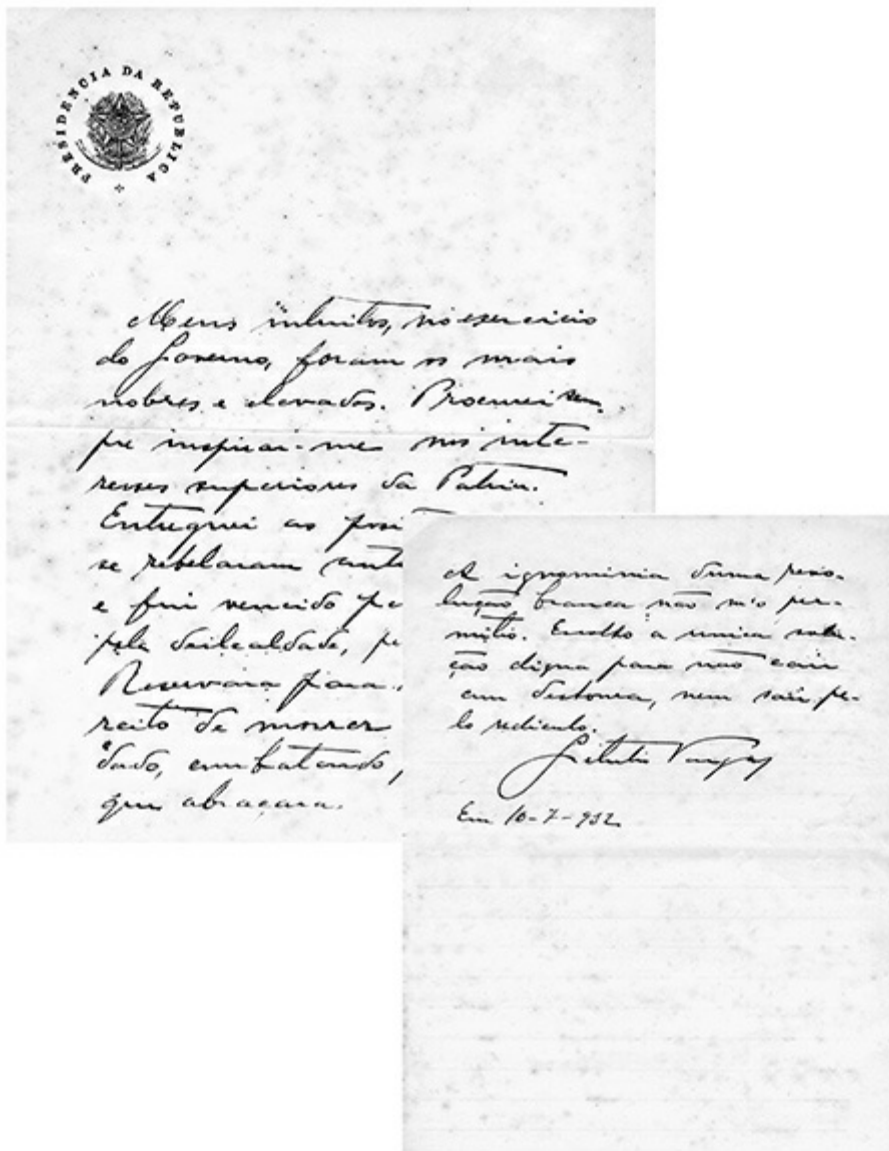 PRESIDENCIA DA REPUBLICA
Meus intuitos, no exercicio
do Governo, foram os mais
nobres e elevados. Procurei sem-
pre inspirar-me nos inte-
resses superiores da Patria.
Entreguei as posi
se rebelaram
e fui vencido pe
pela deslealdade, pe
Reservara para
reito de morrer
dado, combatendo,
que abraçara.
A ignominia duma revo-
lução branca não m'o per-
mitiu. Escolho a unica solu-
ção digna para não cair
em deshonra, nem sair pe-
lo ridiculo.
Getulio Vargas
Em 10-7-932